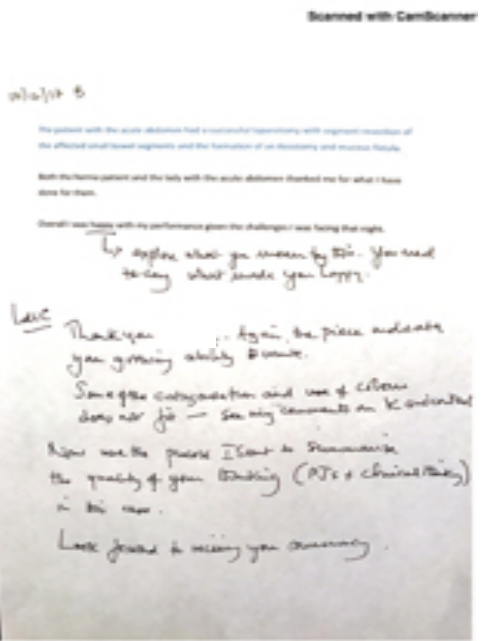 Scanned with CamScanner
The patient with the acute abdomen had a successful laparotomy with segment resection of
the affected small bowel segments and the formation of an ileostomy and mucous fistula.
Both the hernia patient and the lady with the acute abdomen thanked me for what I have
done for them.
Overall I was happy with my performance given the challenges I was facing that night.
↳ explore what you mean by this. You need
to say what made you happy.
Thank you .. Again, the piece indicates
your growing ability to write.
Some of the categorisation and use of colours
does not fit — see my comments on K and context
Now use the I sent to summarise
the quality of your thinking (PJs + clinical thinking)
in this case.
Look forward to receiving your summary.